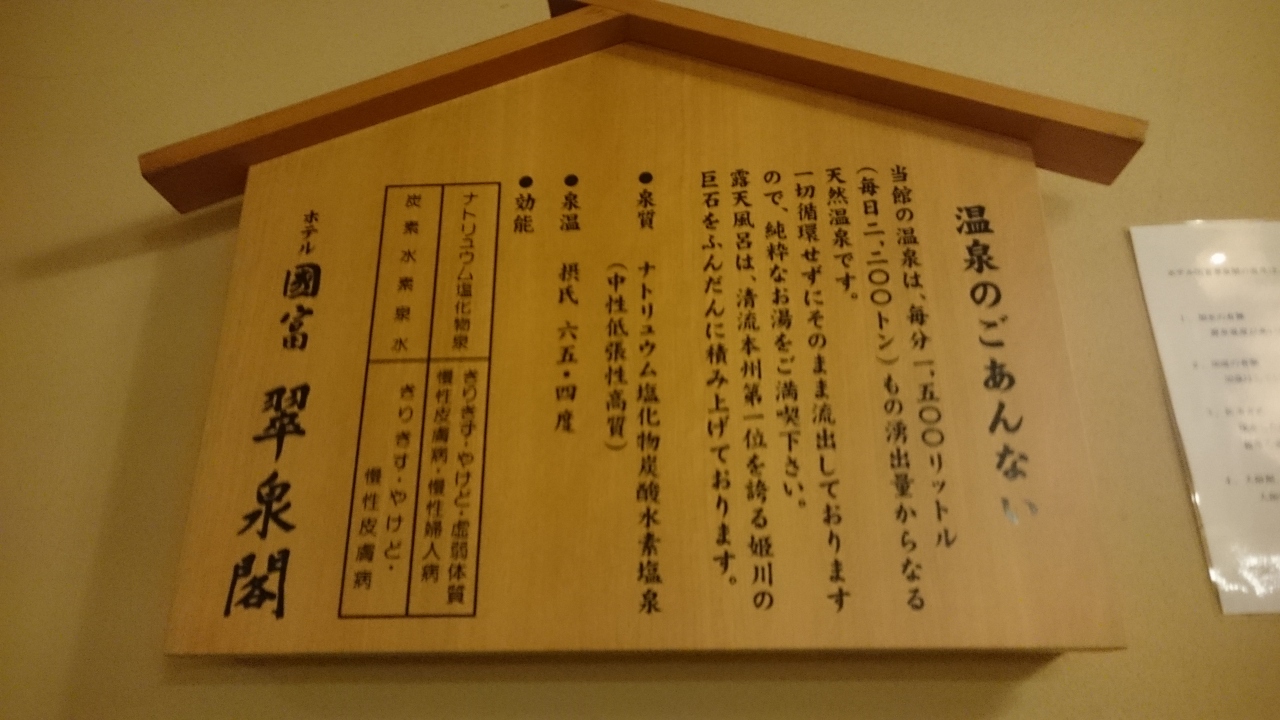 温泉のごあんない
当館の温泉は、毎分一、五〇〇リットル
(毎日二、二〇〇トン)もの湧出量からなる
天然温泉です。
一切循環せずにそのまま流出しております
ので、純粋なお湯をご満喫下さい。
露天風呂は、清流本州第一位を誇る姫川の
巨石をふんだんに積み上げております。
●泉質 ナトリュウム塩化物炭酸水素塩泉
(中性低張性高質)
●泉温 摂氏 六五・四度
●効能
ナトリュウム塩化物泉 きりきず・やけど・虚弱体質
慢性皮膚病・慢性婦人病
炭素水素泉水 きりきず・やけど・
慢性皮膚病
ホテル 國富 翠泉閣